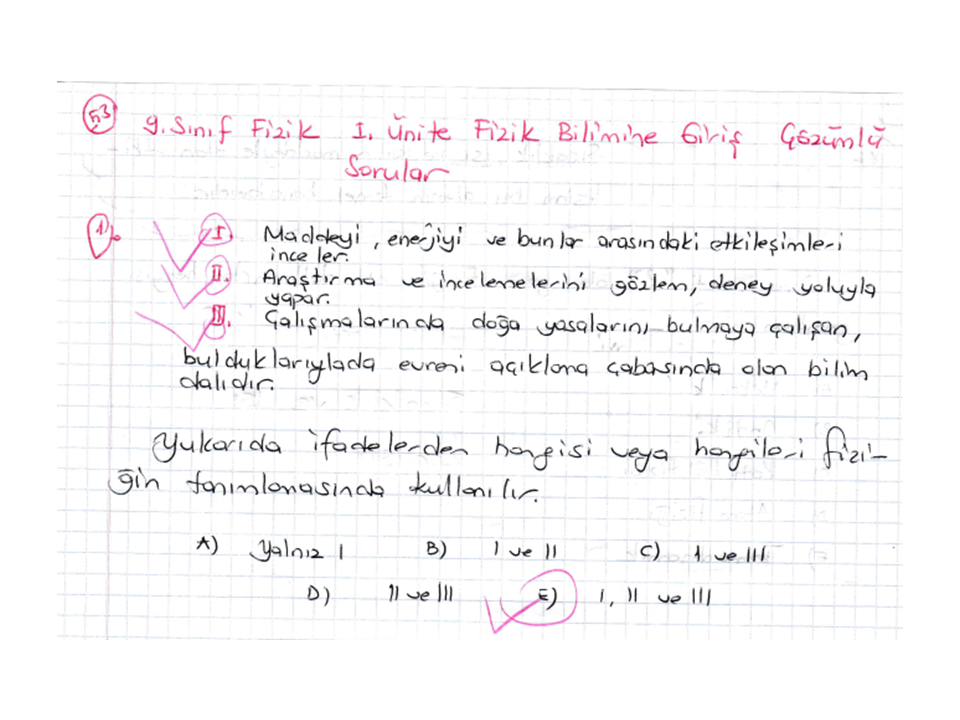 53
9. Sınıf Fizik I. Ünite Fizik Bilimine Giriş Çözümlü
Sorular
1. I. Maddeyi, enerjiyi ve bunlar arasındaki etkileşimleri
inceler.
II. Araştırma ve incelemelerini gözlem, deney yoluyla
yapar.
III. Çalışmalarında doğa yasalarını bulmaya çalışan,
bulduklarıylada evreni açıklama çabasında olan bilim
dalıdır.
Yukarıda ifadelerden hangisi veya hangileri fizi-
ğin tanımlanasında kullanılır.
A) Yalnız I B) I ve II C) I ve III
D) II ve III E) I, II ve III